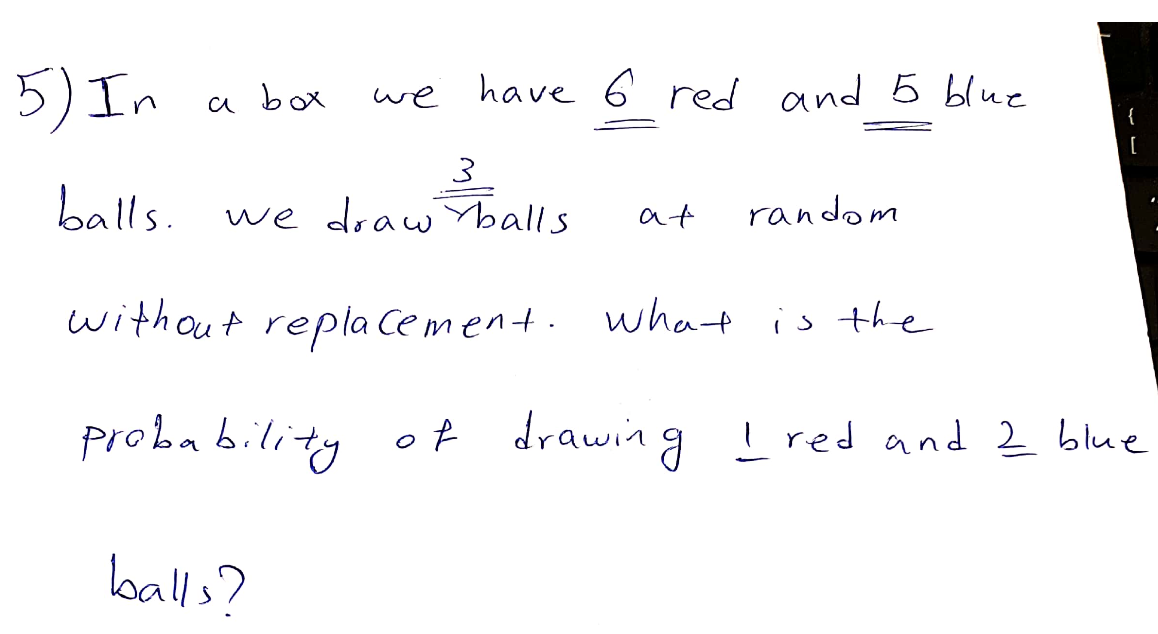 5) In a box we have 6 red and 5 blue
balls. we draw 3 balls at random
without replacement. what is the
probability of drawing 1 red and 2 blue
balls?